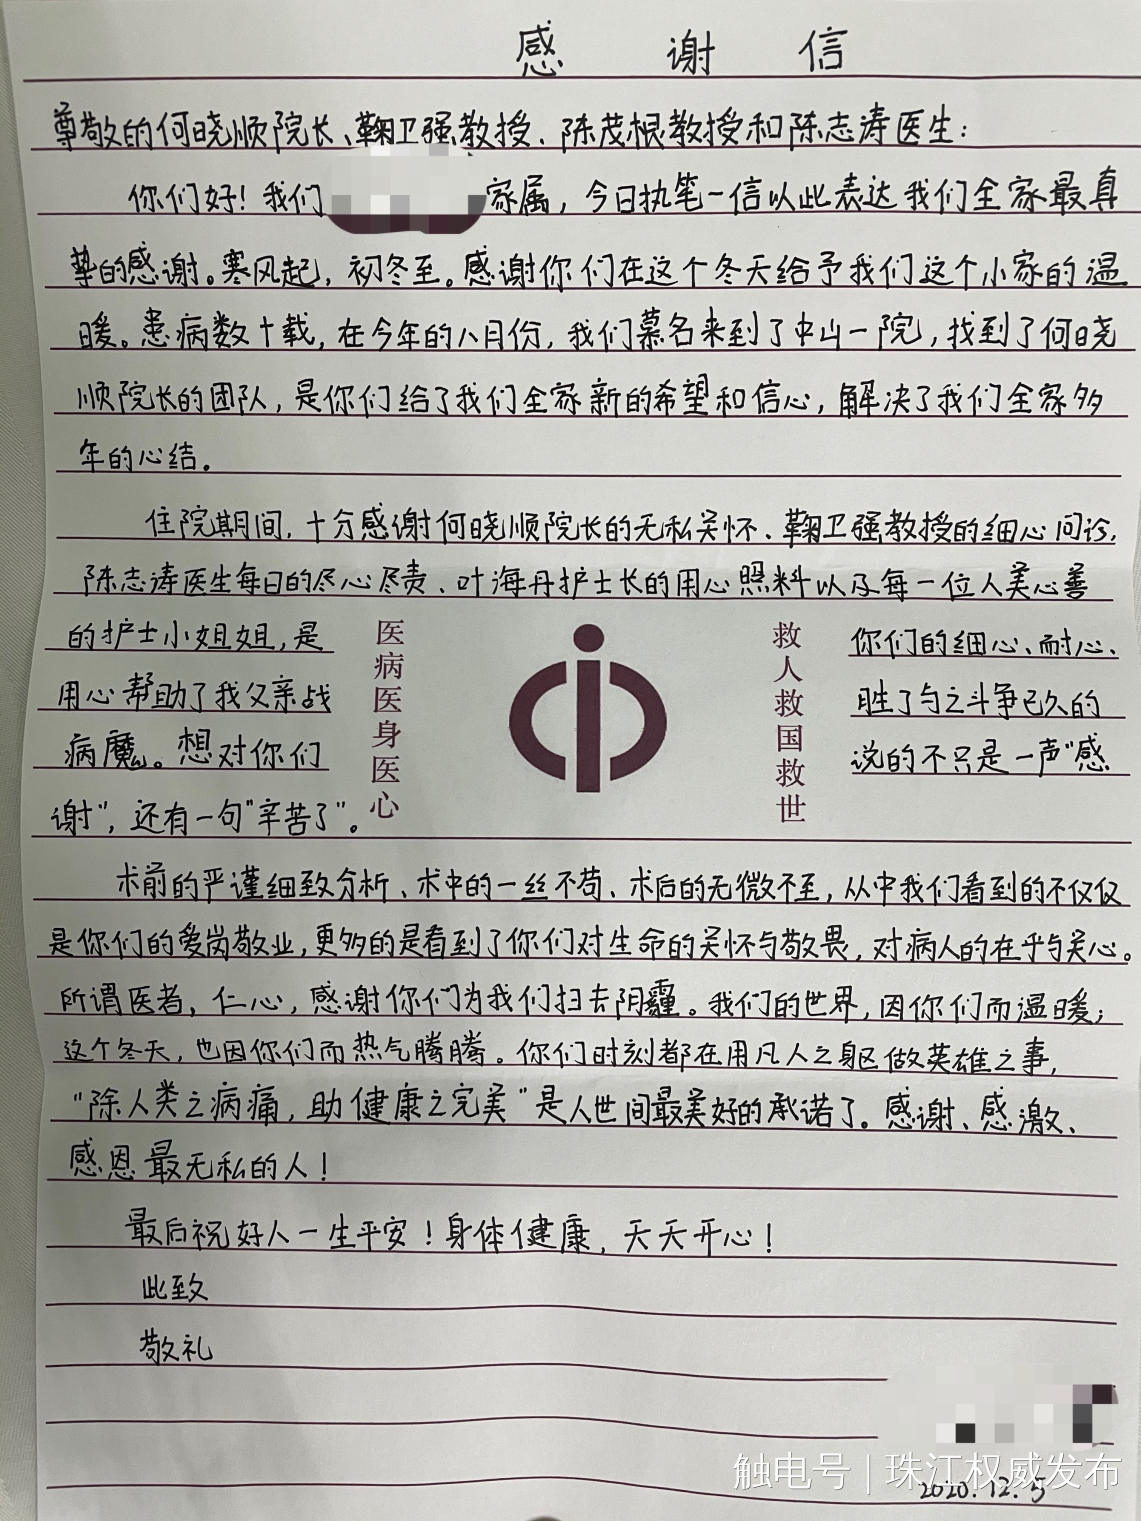 感谢信
尊敬的何晓顺院长、鞠卫强教授、陈茂根教授和陈志涛医生：
你们好！我们家属，今日执笔一信以此表达我们全家最真
挚的感谢。寒风起，初冬至。感谢你们在这个冬天给予我们这个小家的温
暖。患病数十载，在今年的八月份，我们慕名来到了中山一院，找到了何晓
顺院长的团队，是你们给了我们全家新的希望和信心，解决了我们全家多
年的心结。
住院期间，十分感谢何晓顺院长的无私关怀、鞠卫强教授的细心问诊，
陈志涛医生每日的尽心尽责、叶海丹护士长的用心照料以及每一位人美心善
的护士小姐姐，是你们的细心、耐心、
用心帮助了我父亲战胜了与之斗争已久的
病魔。想对你们说的不只是一声“感
谢”，还有一句“辛苦了”。
医病医身医心
救人救国救世
术前的严谨细致分析、术中的一丝不苟、术后的无微不至，从中我们看到的不仅仅
是你们的爱岗敬业，更多的是看到了你们对生命的关怀与敬畏，对病人的在乎与关心。
所谓医者，仁心，感谢你们为我们扫去阴霾。我们的世界，因你们而温暖；
这个冬天，也因你们而热气腾腾。你们时刻都在用凡人之躯做英雄之事，
“除人类之病痛，助健康之完美”是人世间最美好的承诺了。感谢、感激、
感恩最无私的人！
最后祝好人一生平安！身体健康，天天开心！
此致
敬礼
2020.12.5
触电号|珠江权威发布